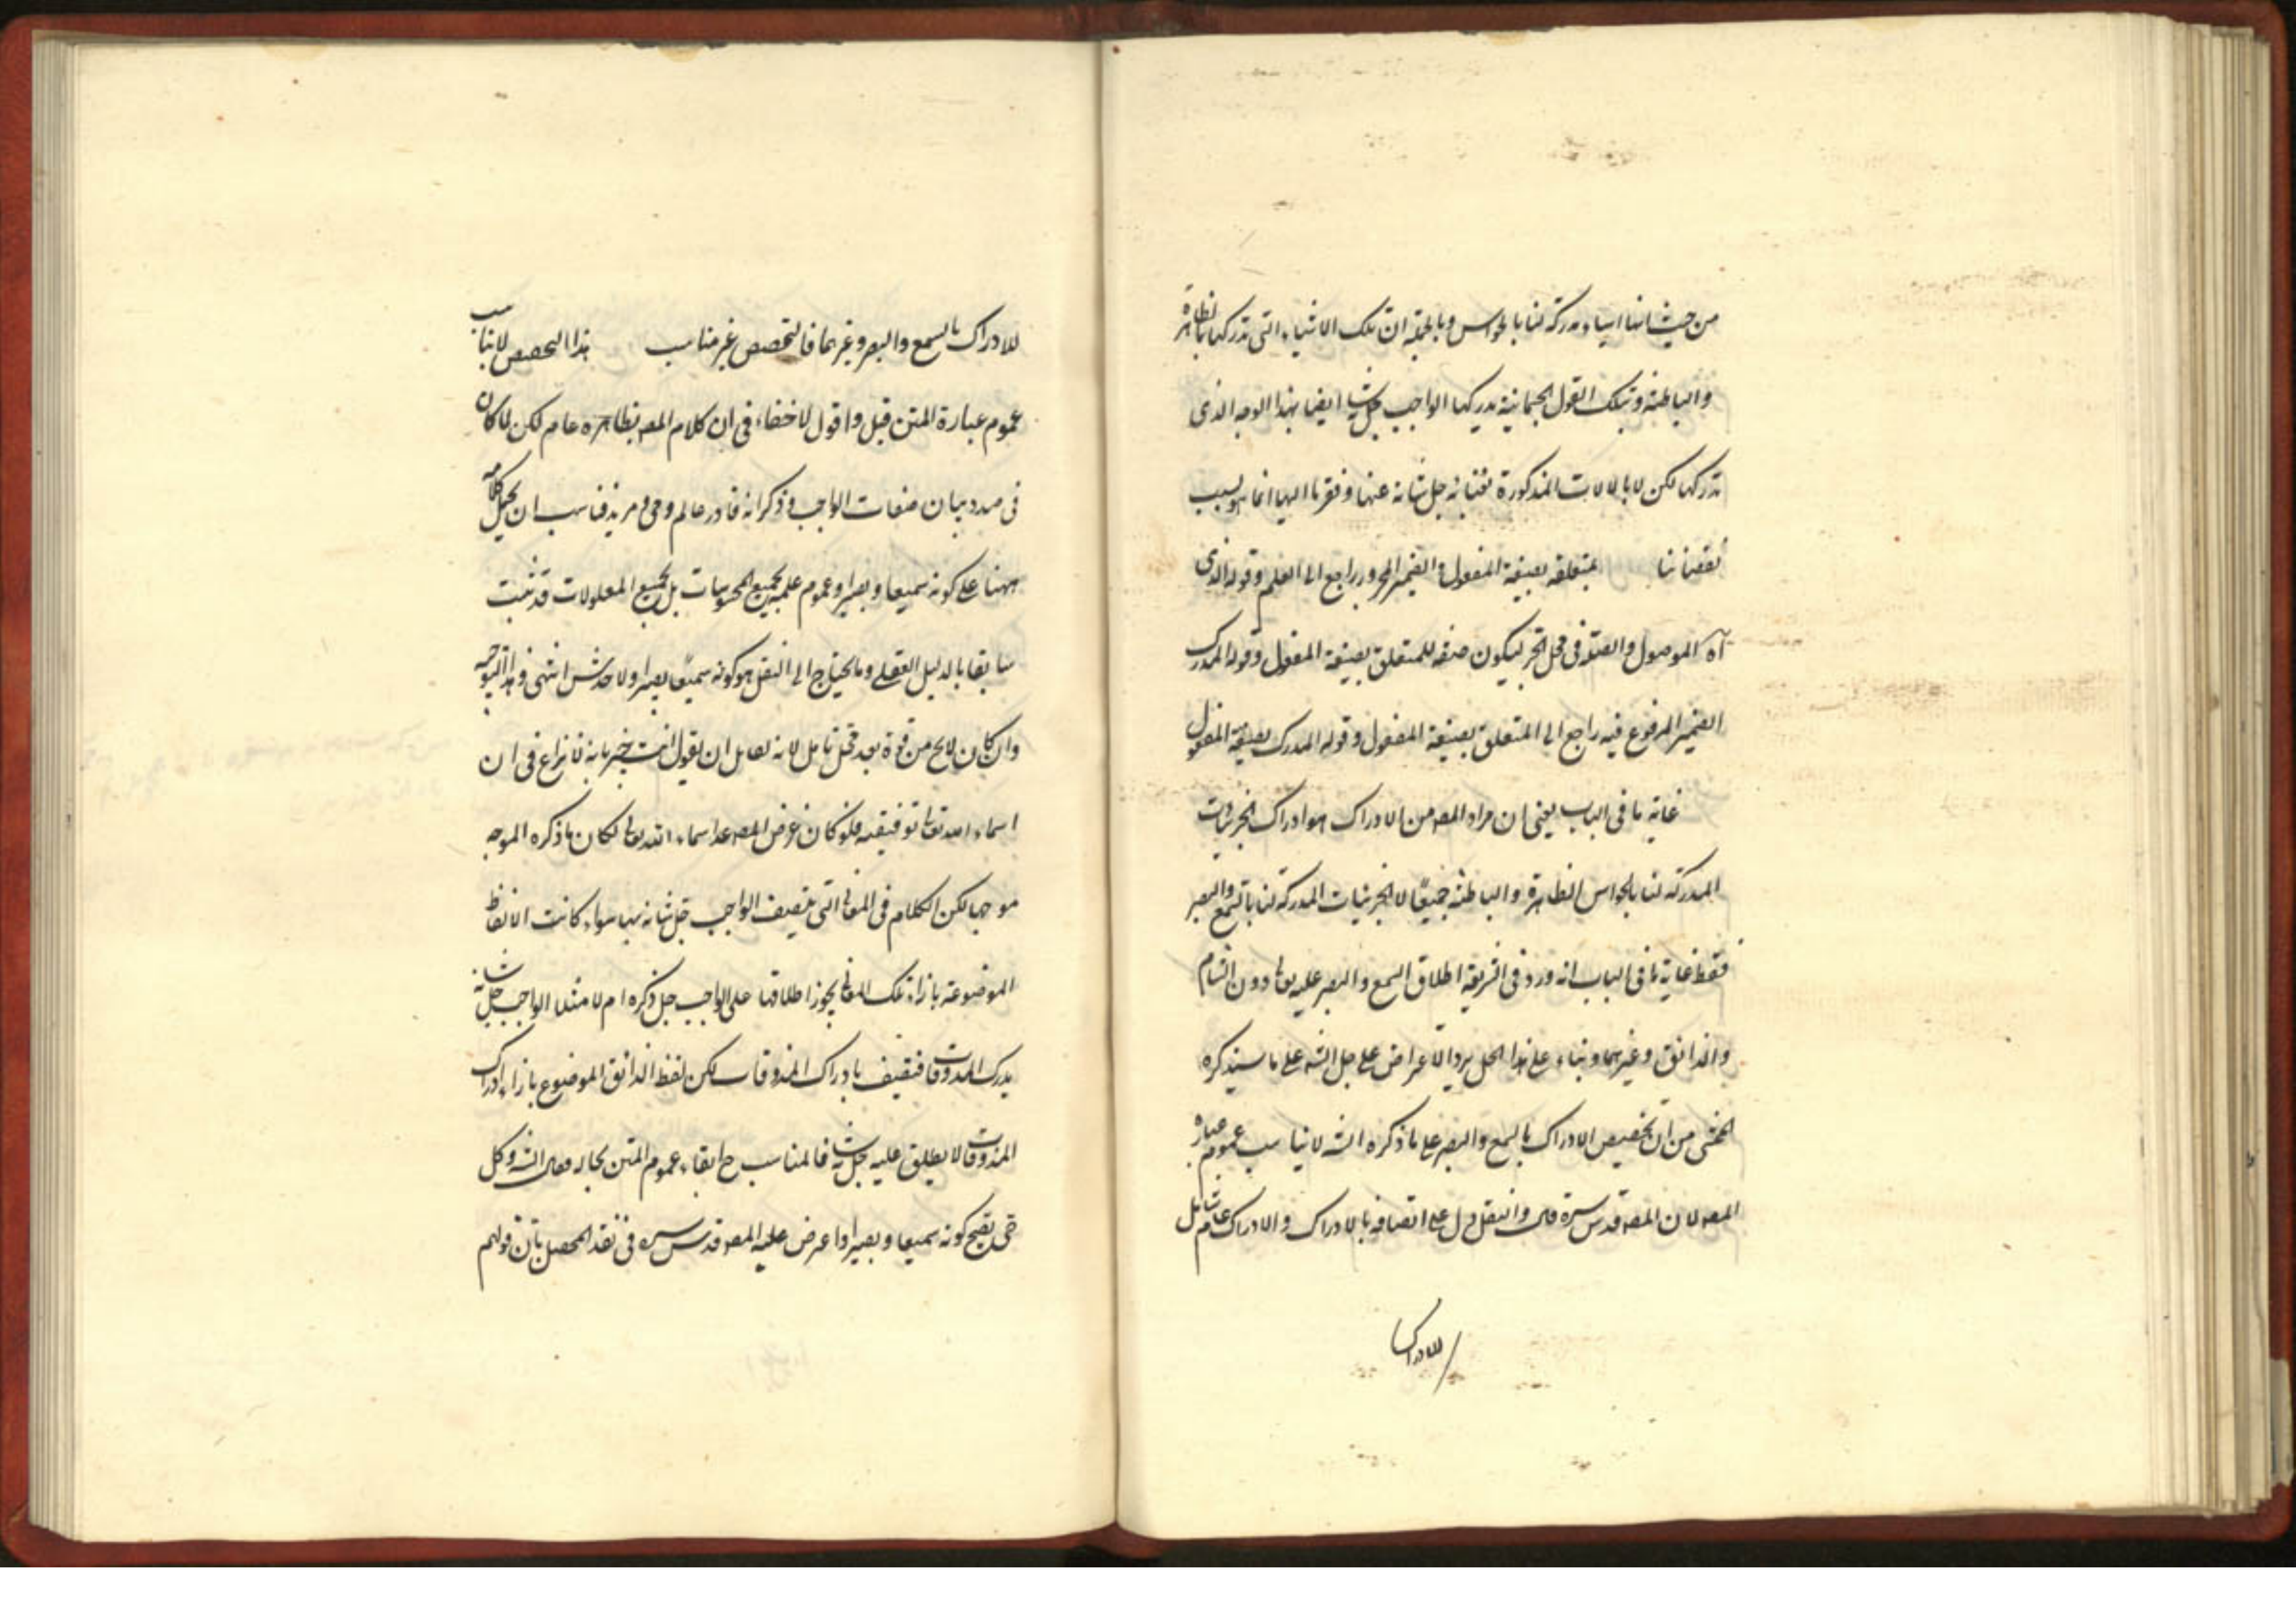 من حيث انها اشياء مدركة لنا بالحواس وبالجملة ان تلك الاشياء التى ندركها بالظاهرة
والباطنة وبتلك القول الجسمانية يدركها الواجب جل شانه ايضا بهذا الوجه الذى
ندركها لكن لا بالالات المذكورة لغنائه جل شانه عنها وفقرنا اليها انما هو بسبب
نقصاننا بمتعلقه بصيغة المفعول والضمير المجرور راجع الى العلم وقوله الذى
آه الموصول والصلة فى محل الجر ليكون صفة للمتعلق بصيغة المفعول وقوله المدرك
الضمير المرفوع فيه راجع الى المتعلق بصيغة المفعول وقوله المدرك بصيغة المفعول
غاية ما فى الباب يعنى ان مراد المصـ من الادراك هو ادراك الجزئيات
المدركة لنا بالحواس الظاهرة والباطنة جميعًا لا الجزئيات المدركة لنا بالسمع والبصر
فقط غاية ما فى الباب انه ورد فى الشريعة اطلاق السمع والبصر عليه تعالى دون الشام
والذائق وغيرهما وبناء على هذا الحمل يرد الاعراض على حل الشـ على ما سيذكره
المحشى من ان تخصيص الادراك بالسمع والبصر على ما ذكره الشـ لا يناسب عموم عبارة
المصـ لان المصـ قدس سره قال والنقل دل على اتصافه بالادراك والادراك عام شامل
للادراك
للادراك بالسمع والبصر وغيرهما فالتخصيص غير مناسب هذا التخصيص لا يناسب
عموم عبارة المتن قيل واقول لا خفاء فى ان كلام المصـ بظاهره عام لكن لما كان
فى صدد بيان صفات الواجب وذكر انه قادر عالم وحى ومريد فناسب ان يحمل كلامه
ههنا على كونه سميعا وبصيرا وعموم علمه بجميع المحسوسات بل بجميع المعلولات قد ثبت
سابقا بالدليل العقلى وما يحتاج الى النقل هو كونه سميعًا بصيرا ولا خدش انتهى وهذا التوجيه
وان كان لا يخ من قوة بعد محل تامل لانه لقايل ان يقول انت خبير بانه لا نزاع فى ان
اسماء الله تعالى توقيفيه فلو كان غرض المصـ عد اسماء الله تعالى لكان ما ذكره الموجه
موجها لكن الكلام فى المعانى التى يتصف الواجب جل شانه بها سواء كانت الالفاظ
الموضوعة بازاء تلك المعانى يجوز اطلاقها على الواجب جل ذكره ام لا مثلا الواجب جل شانه
يدرك المذوقات فيتصف بادراك المذوقات لكن لفظ الذائق الموضوع بازاء ادراك
المذوقات لا يطلق عليه جل شانه فالمناسب ح ابقاء عموم المتن بحاله قال الشـ وكل
حى يصح كونه سميعا وبصيرا واعرض عليه المصـ قدس سره فى نقد المحصل بان قولهم